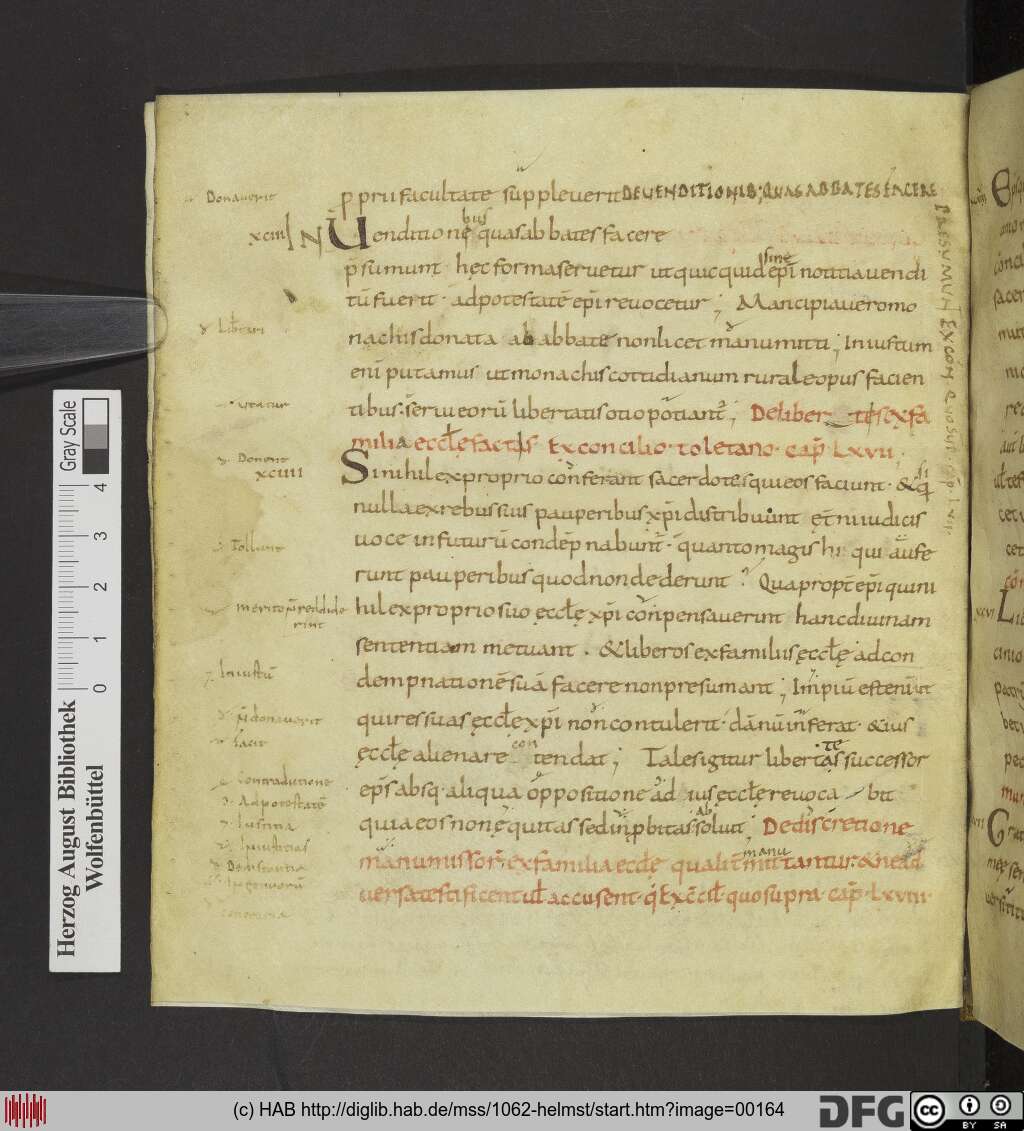 ppru facultate suppleverit DE VENDITIONIB; QUAS ABBATES FACERE
PRESUMUNT EX CON
xciii IN Uenditionębus quas abbates facere
p̄sumunt hęc forma servetur ut quicquid sine ep̄i notitia vendi
tū fuerit · ad potestatē ep̄i revocetur ; Mancipia vero mo
nachis donata ab abbate non licet manumitti ; Iniustum
enī putamus ut monachis cottidianum rurale opus facien
tibus · servi eorū libertatis otio potiant᷑ ; De liber tis ex fa
milia eccłę factis Ex concilio toletano · cap̄ Lxvii ·
xciiii Si nihil ex proprio conferant sacerdotes qui eos faciunt · & si
nulla ex rebus suis pauperibus xp̄i distribuunt ęt̄ni iudicis
voce in futurū condēpnabunt᷑ · quanto magis hi qui aufe
runt pauperibus quod non dederunt ? Quaprop̄t ep̄i qui ni
hil ex proprio suo ęccłę xp̄i conpensaverint hanc divinam
sententiam metuant · & liberos ex familiis ęccłę ad con
dempnationē suā facere non presumant ; Impiū est enī ut
qui res suas ęccłę xp̄i non contulerit · damnū inferat · & ius
ęccłę alienare contendat ; Tales igitur libertos successor
ep̄s absq · aliqua oppositione ad ius ęccłę revoca bit
quia eos non ęquitas sed inp̄bitas absoluit ; De discretione
manumissor᷑ ex familia eccłę qualit̄ manumittantur · & ne ad
versa testificent᷑ ul accusent · Ex c̄cił quo supra · cap̄ · Lxviii ·
Donaverit
Liberari
utatur
Donent
Tollunt
merito p̄reddide
rint
Iniustū
n̄ donaverit
facit
contradictione
Ad potestatē
Iustitia
Iniusticias
De distantia
Ingenuorū
contraria
Gray Scale
4
3
2
1
0
Herzog August Bibliothek
Wolfenbüttel
(c) HAB http://diglib.hab.de/mss/1062-helmst/start.htm?image=00164
DFG
cc
BY SA